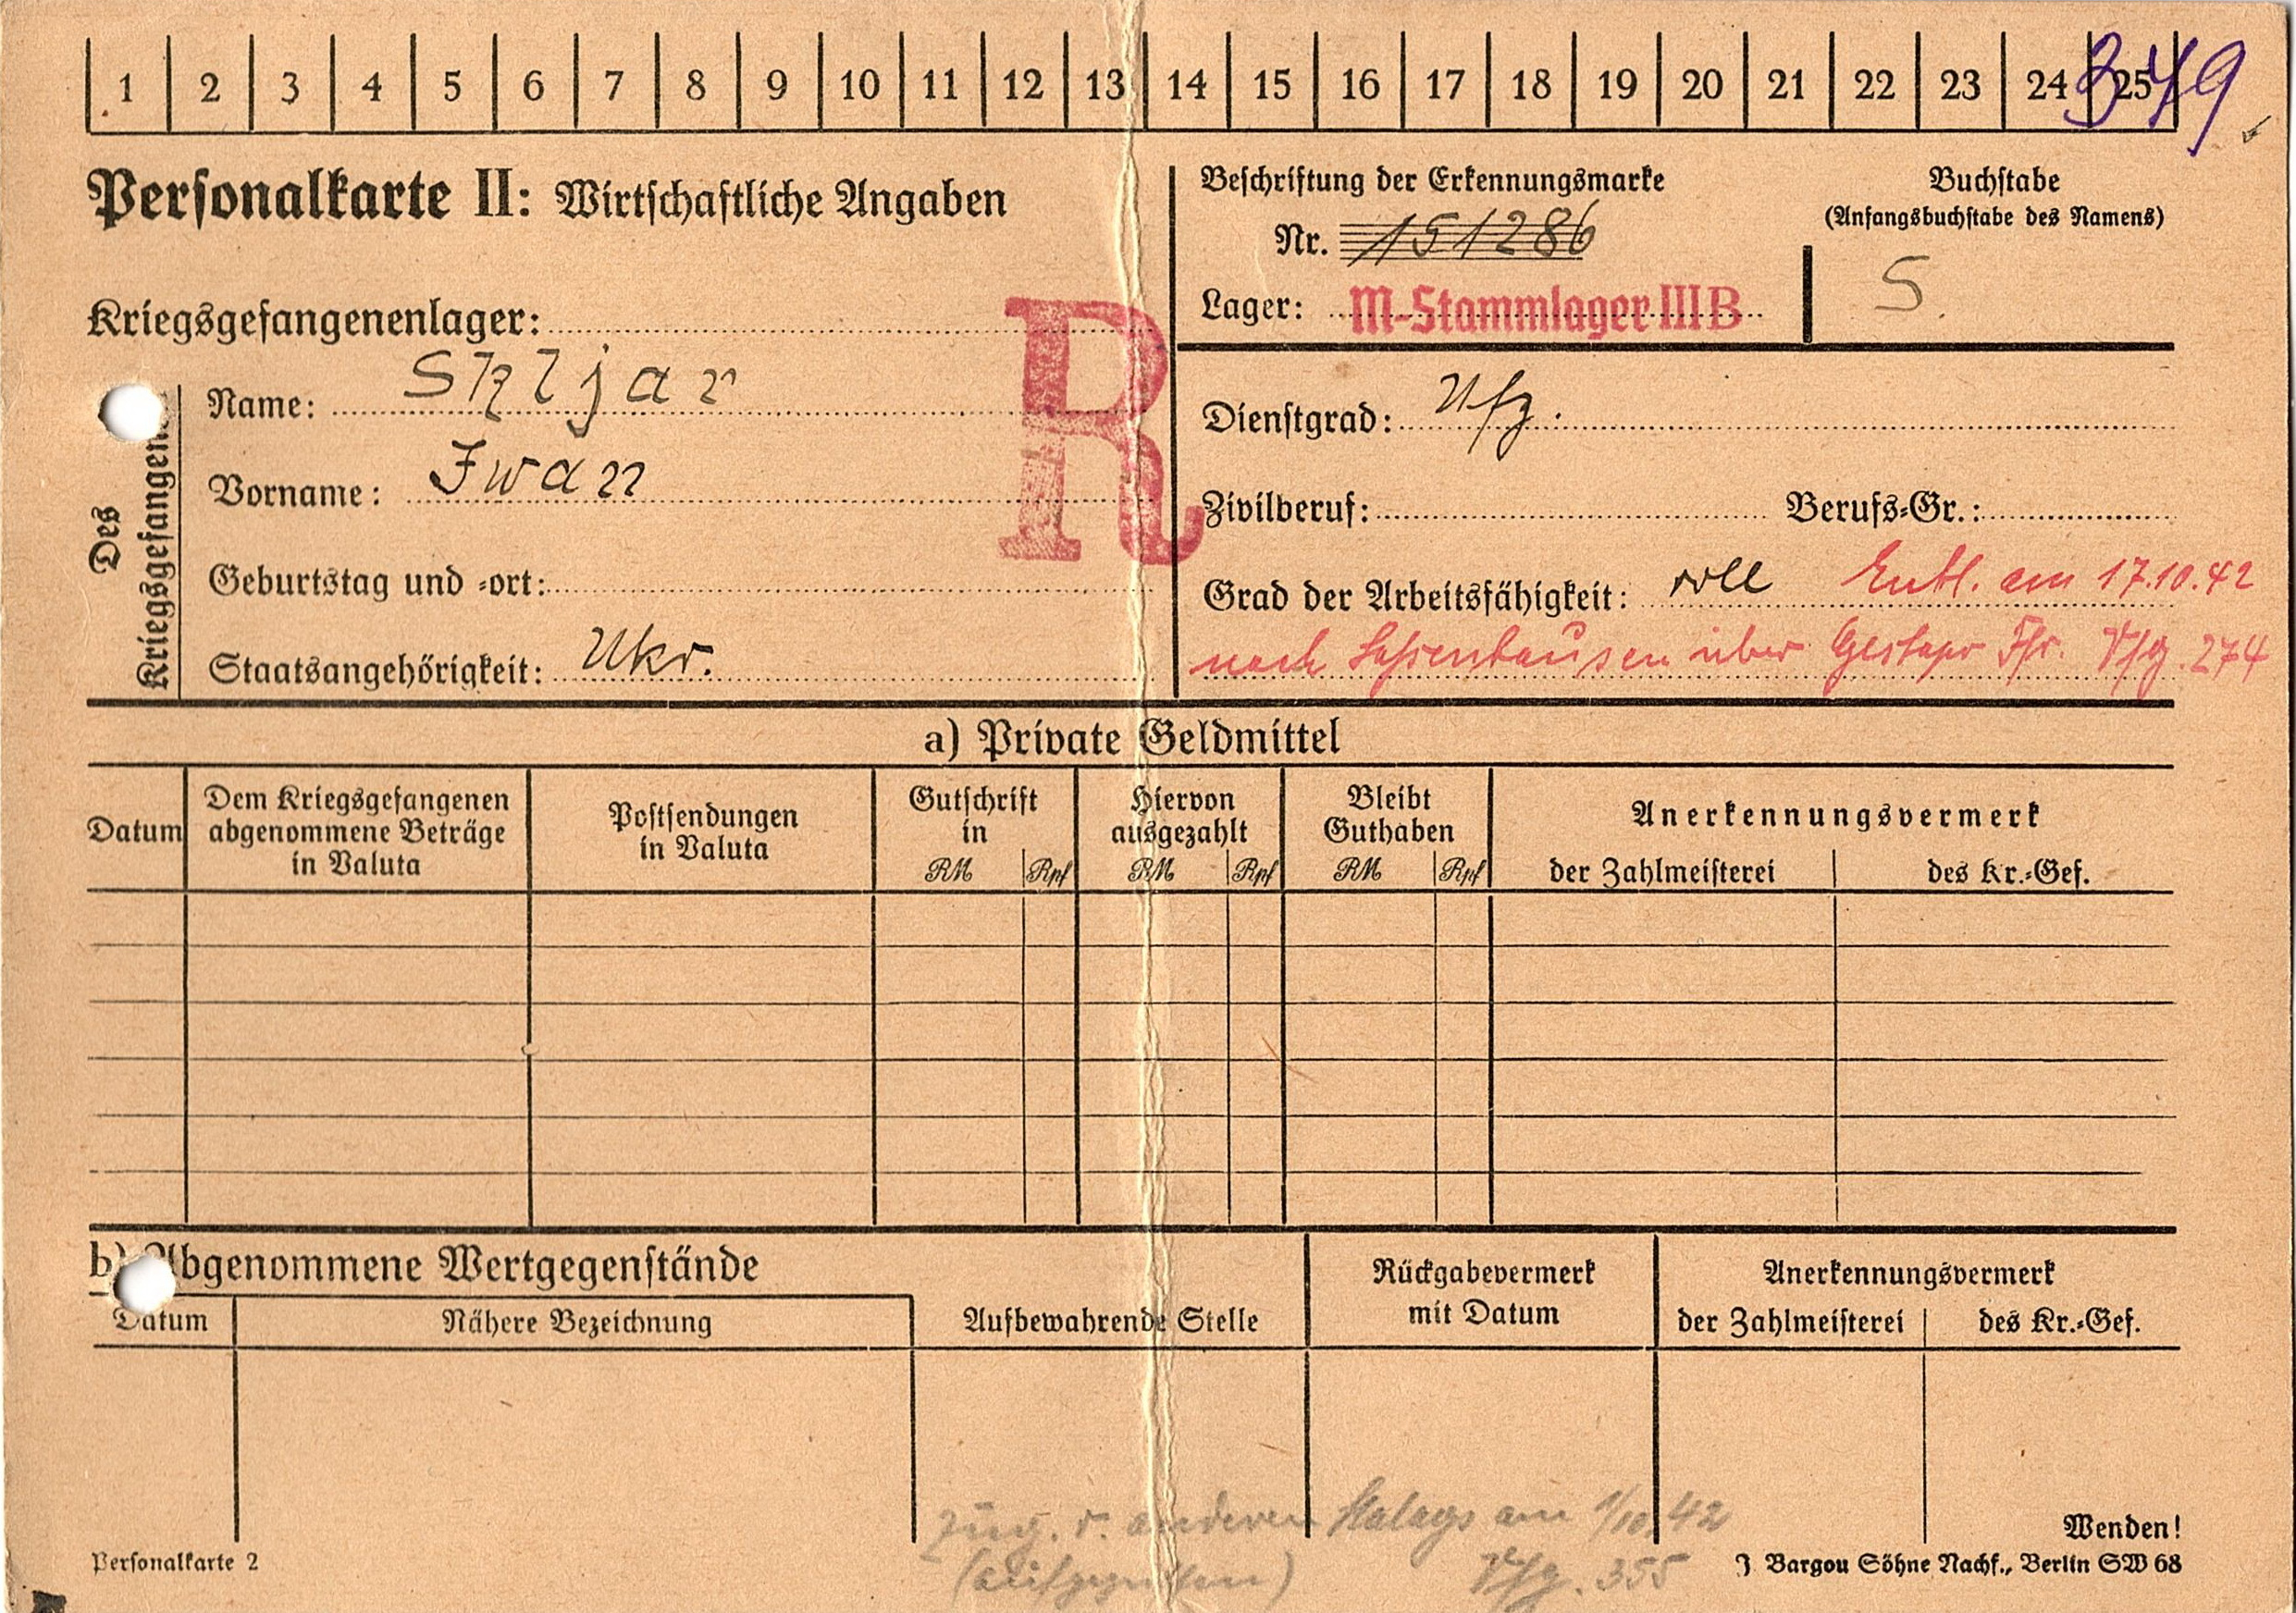 1 2 3 4 5 6 7 8 9 10 11 12 13 14 15 16 17 18 19 20 21 22 23 24 25
349
Personalkarte II: Wirtschaftliche Angaben
Beschriftung der Erkennungsmarke
Nr. 151286
Lager: M-Stammlager III B
Buchstabe
(Anfangsbuchstabe des Namens)
S.
Kriegsgefangenenlager:
R
Des Kriegsgefangenen
Name: Skljar
Vorname: Iwan
Geburtstag und -ort:
Staatsangehörigkeit: Ukr.
Dienstgrad: Ufz.
Zivilberuf: Berufs-Gr.:
Grad der Arbeitsfähigkeit: voll Entl. am 17.10.42
nach über Gestapo Ffr. Vfg. 274
a) Private Geldmittel
Datum
Dem Kriegsgefangenen
abgenommene Beträge
in Valuta
Postsendungen
in Valuta
Gutschrift
in
RM Rpf
Hiervon
ausgezahlt
RM Rpf
Bleibt
Guthaben
RM Rpf
Anerkennungsvermerk
der Zahlmeisterei des Kr.-Gef.
b) Abgenommene Wertgegenstände
Datum Nähere Bezeichnung
Aufbewahrende Stelle
Rückgabevermerk
mit Datum
Anerkennungsvermerk
der Zahlmeisterei des Kr.-Gef.
Zug. v. anderen Stalags am 1/10.42
(aufgegriffen) Vfg. 355
Wenden!
Personalkarte 2
J Bargou Söhne Nachf., Berlin SW 68